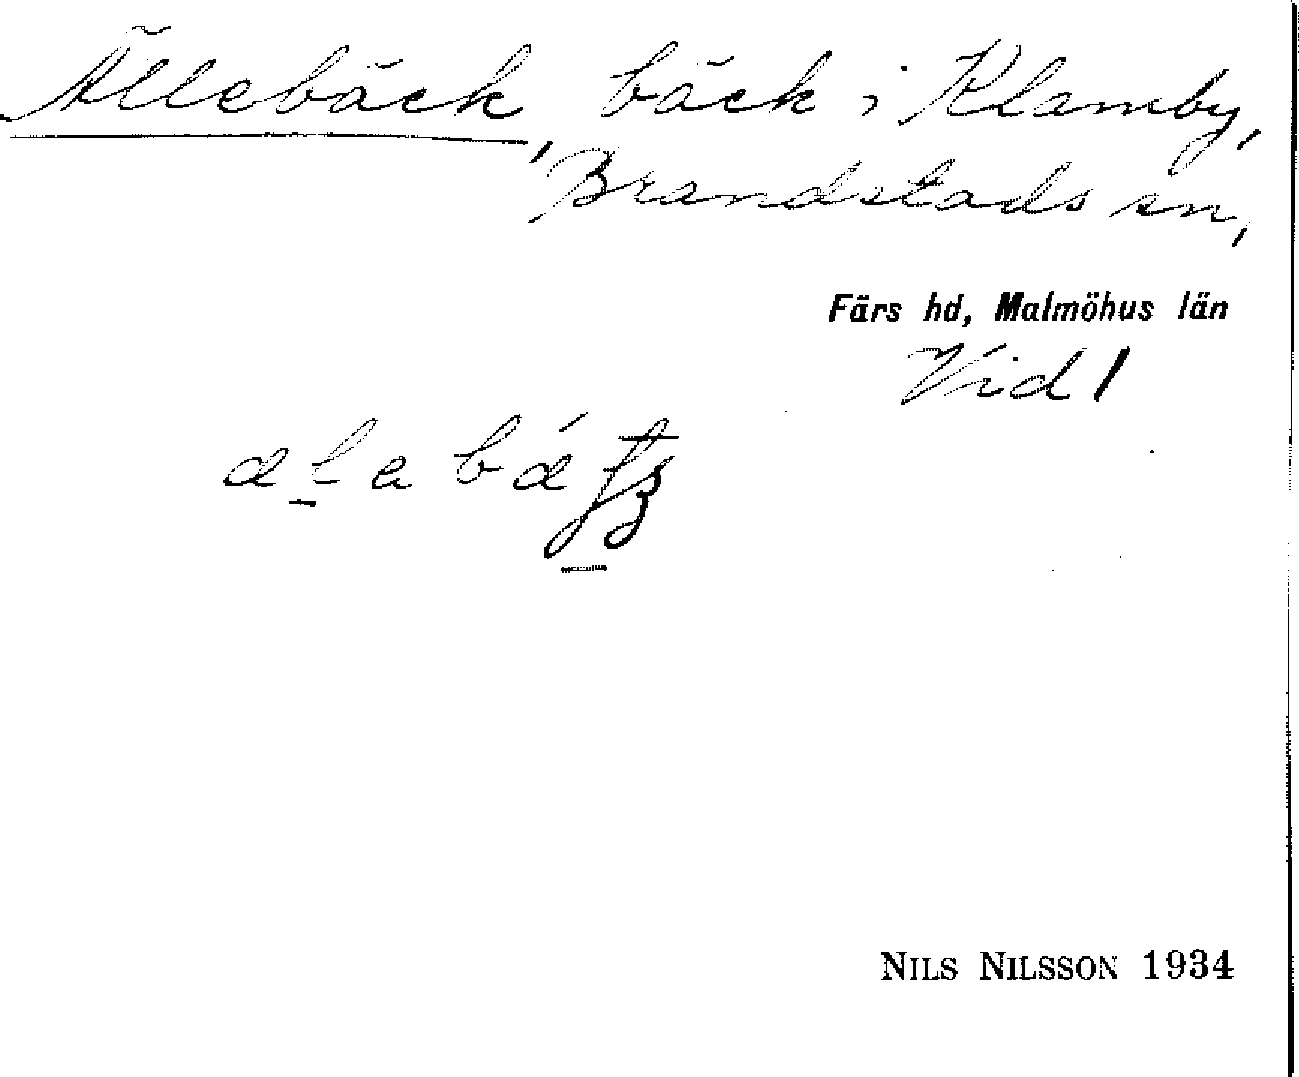 Ällebäck, bäck i Klamby,
Brandstads sn,
Färs hd, Malmöhus län
Vid 1
NILS NILSSON 1934